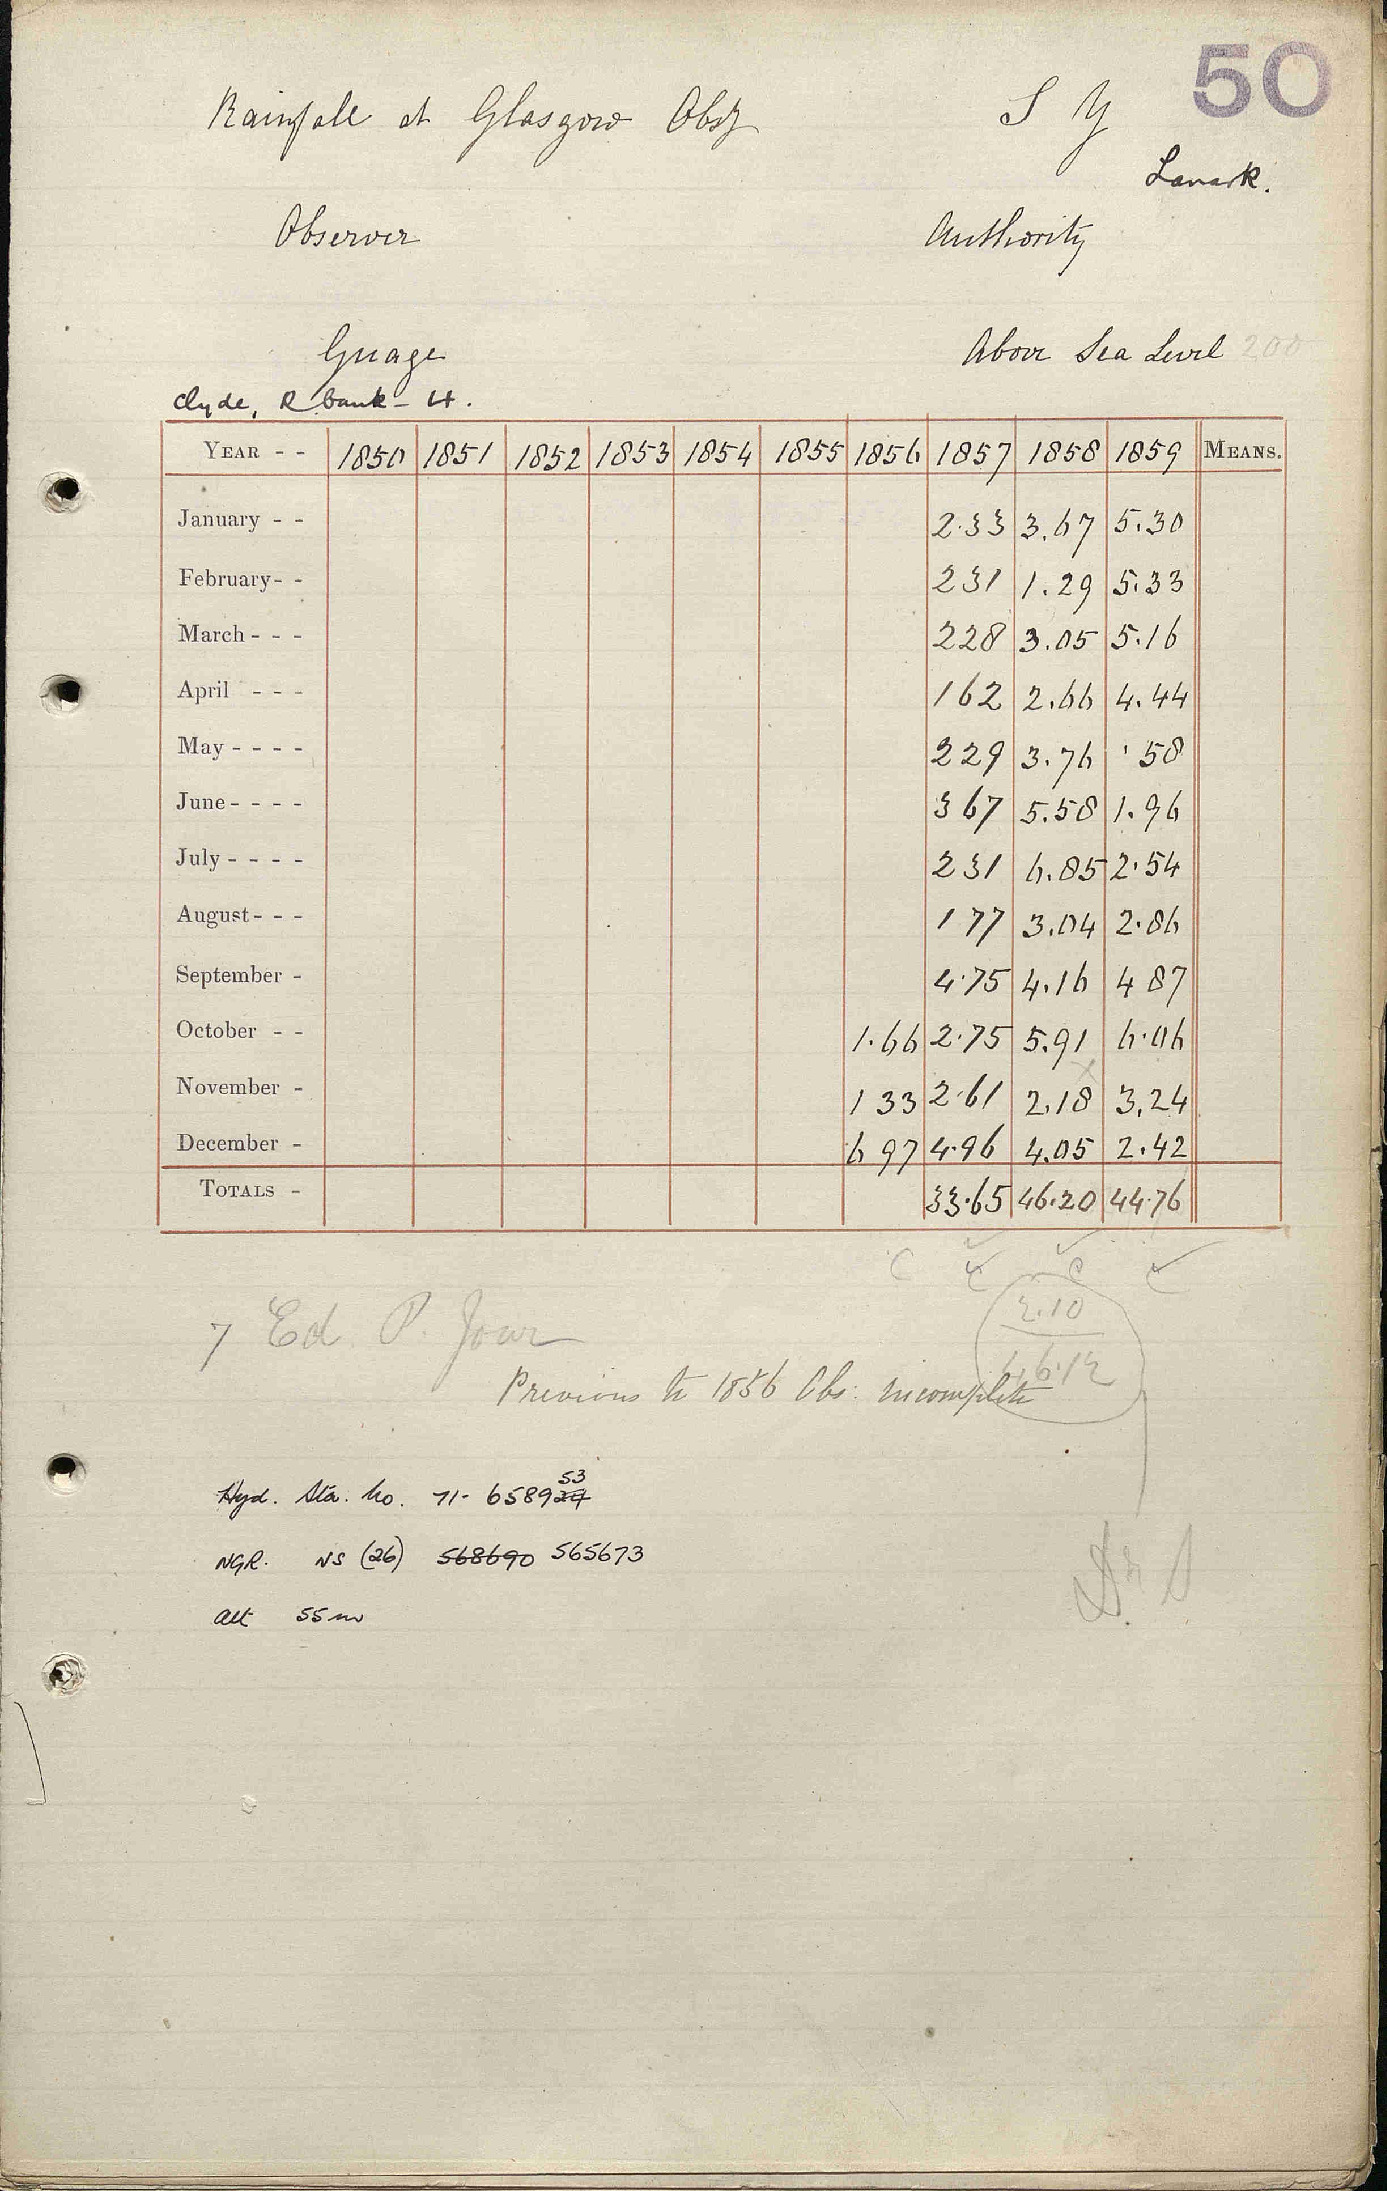 50
Rainfall at Glasgow Obsy S Y
Lanark.
Observer Authority
Guage Above Sea Level 200
Clyde, R bank - 4.
YEAR - - 1850 1851 1852 1853 1854 1855 1856 1857 1858 1859 MEANS.
January - - 2.33 3.67 5.30
February - - 231 1.29 5.33
March - - - 228 3.05 5.16
April - - - 162 2.66 4.44
May - - - - 229 3.76 .58
June - - - - 367 5.58 1.96
July - - - - 231 6.85 2.54
August - - - 177 3.04 2.86
September - 4.75 4.16 4 87
October - - 1.66 2.75 5.91 6.06
November - 1 33 2.61 2.18 3.24
December - 6 97 4.96 4.05 2.42
TOTALS - 33.65 46.20 44.76
2.10
7 Ed. P. Jour
46.12
Previous to 1856 Obs. incomplete
Hyd. Sta. No. 71- 658924 53
NGR. NS (26) 568690 565673
Dr S
alt 55m